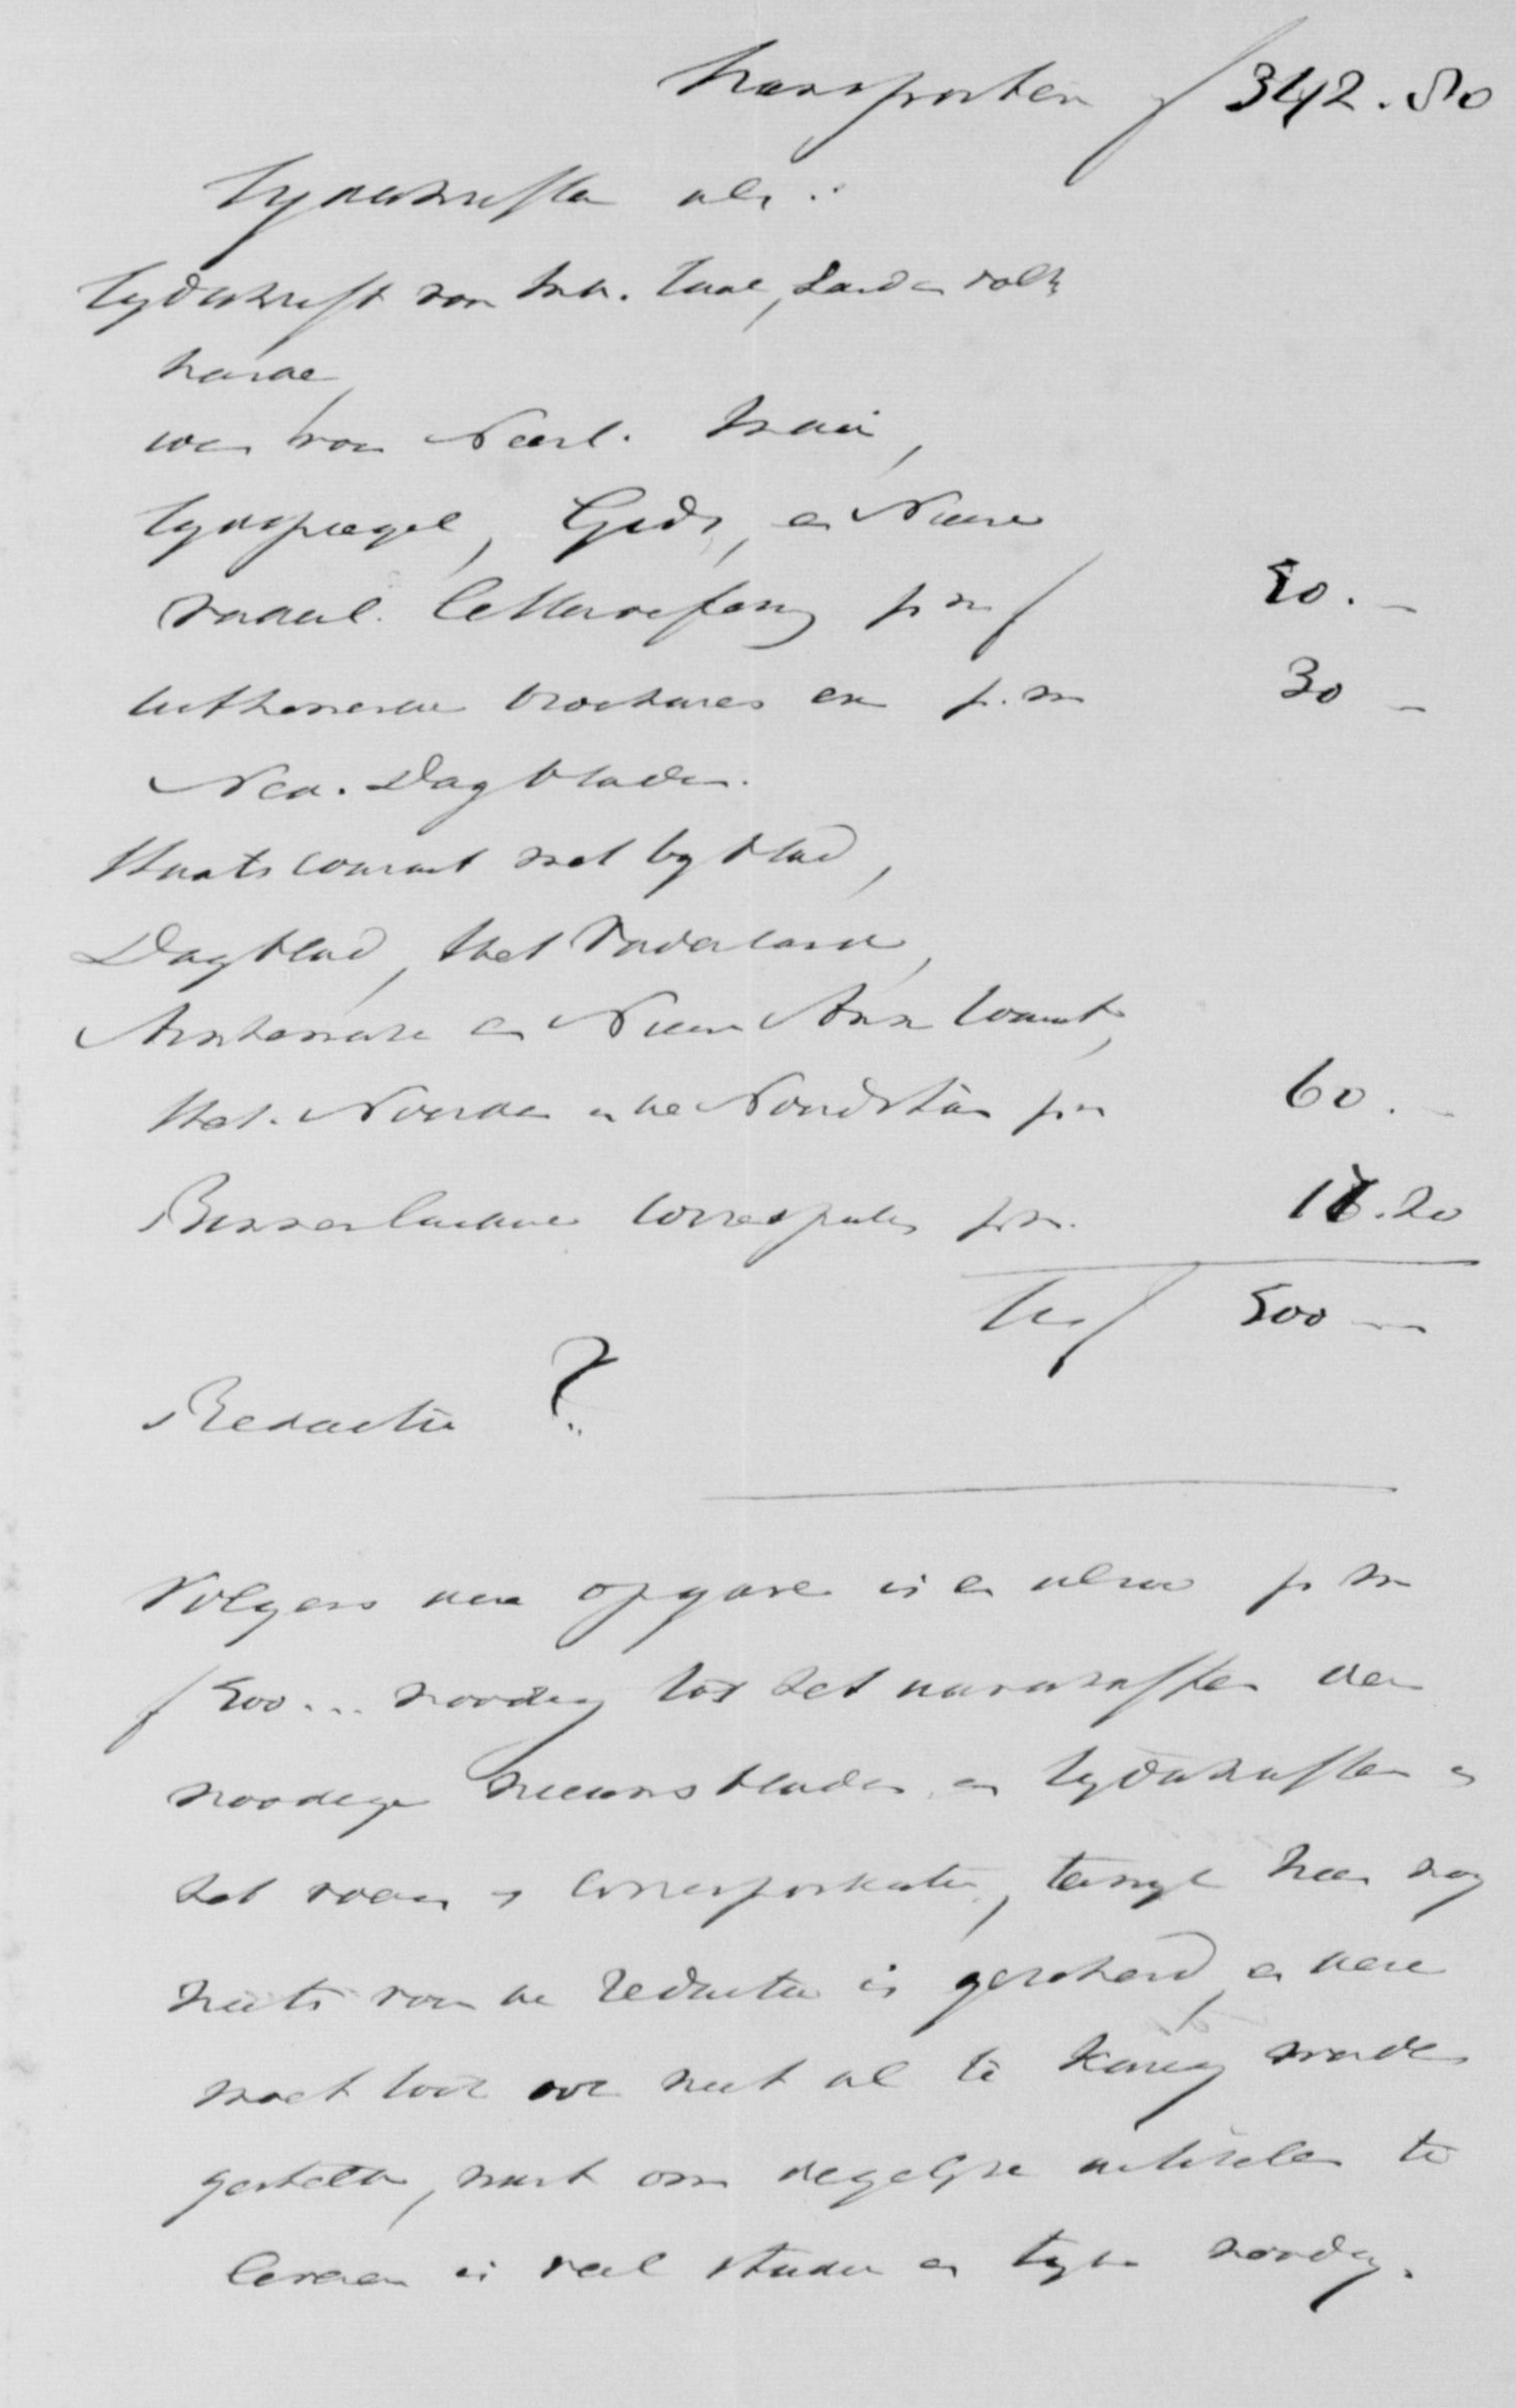 Transporten f 342.80
Tydschriften als:
Tydschrift van Ind. Taal, Land en volk
kunde,
van Neerl. Indië,
Tydspiegel, Gids, en Nieuwe
vaderl. letteroefeng p m f 50.-
brochures en p.m 30 -
Ned. Dagbladen.
Staatscourant met byblad,
Dagblad, Het Vaderland,
Arnhemsche en Nieuwe Arn Courant,
Het Noorden en de Noordstar pm 60.-
Binnenlandsche correspondentie p.m. 17.20
Te f 500 -
Redactie ?
Volgens deze opgave is er alzoo p m
f 500... noodig tot het aanschaffen der
noodige nieuwsbladen en tydschriften en
het voeren der correspondentie, terwyl hier nog
niets voor de redactie is gerekend, en deze
moet toch ook niet al te karig worden
gesteld, want om degelyke artikelen te
leveren is veel studie en tyd noodig.